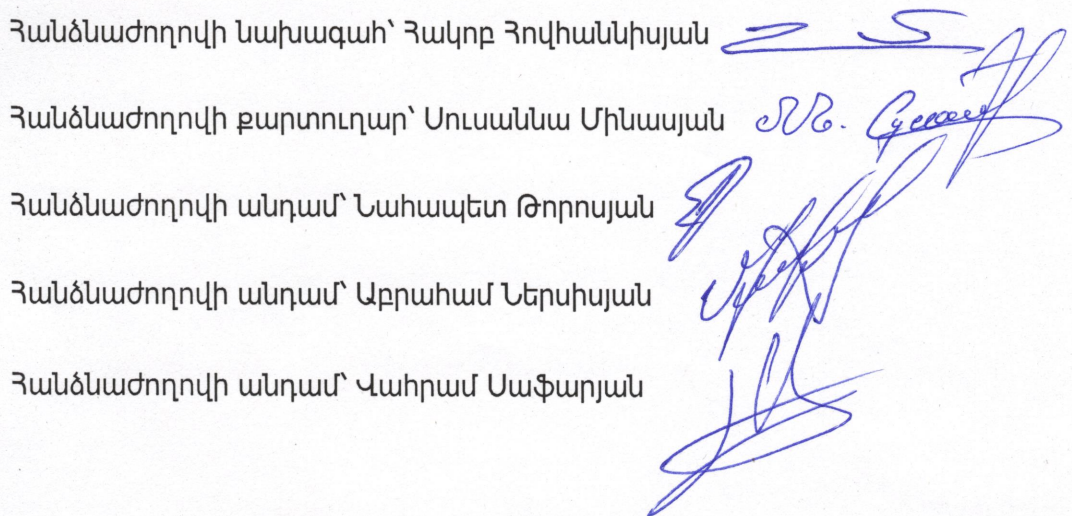 Հանձնաժողովի նախագահ՝ Հակոբ Հովհաննիսյան
Հանձնաժողովի քարտուղար՝ Սուսաննա Մինասյան
Հանձնաժողովի անդամ՝ Նահապետ Թորոսյան
Հանձնաժողովի անդամ՝ Աբրահամ Ներսիսյան
Հանձնաժողովի անդամ՝ Վահրամ Սաֆարյան